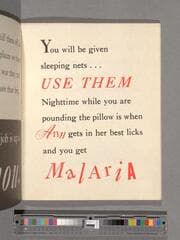 You will be given
sleeping nets . . .
USE THEM
Nighttime while you are
pounding the pillow is when
Ann gets in her best licks
and you get
MalAriA